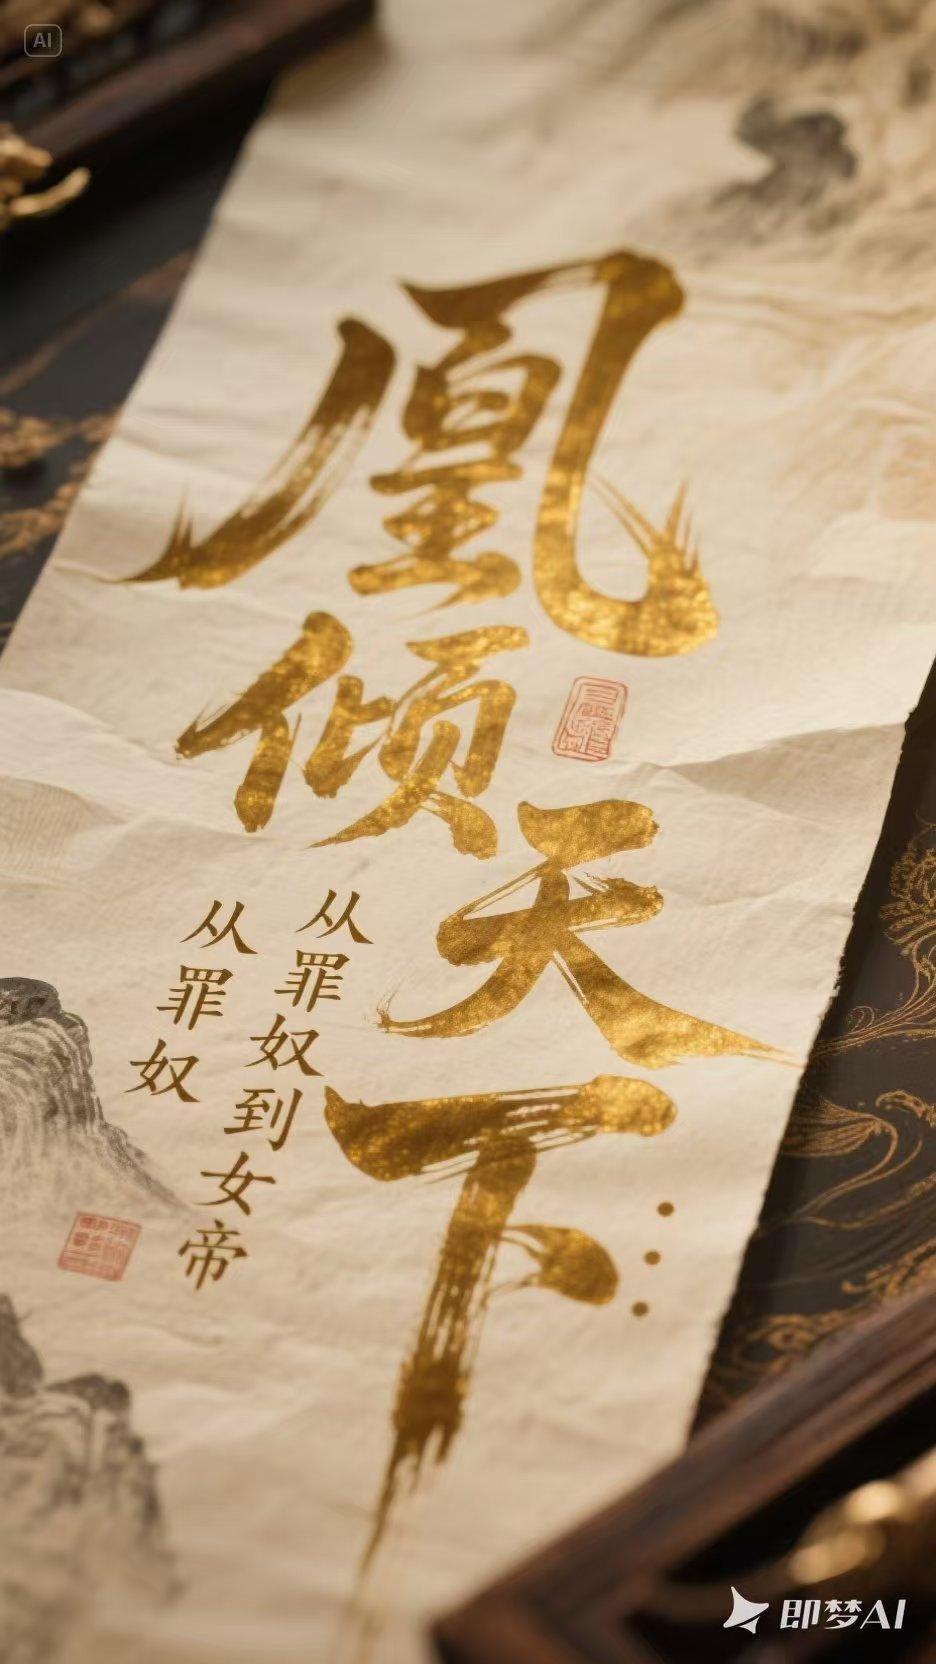 AI
凰倾天下
从罪奴到女帝
从罪奴
即梦AI